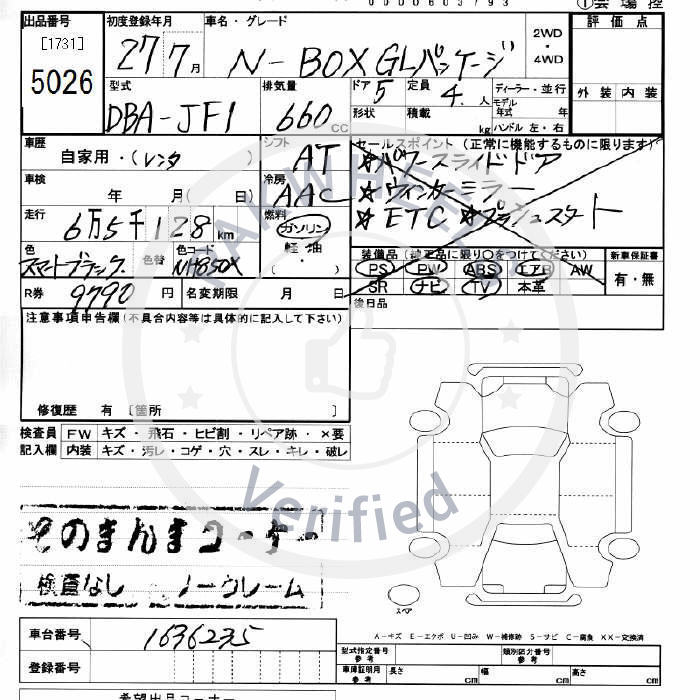 出品番号 初度登録年月 車名・グレード ①会場控
[1731] 27 7月 N-BOX GLパッケージ 2WD・4WD 評価点
5026 型式 排気量 ドア 定員 ディーラー・並行
DBA-JF1 660cc 5 4.人 モデル 年式 年 外装 内装
形状 積載 kg ハンドル 左・右
車歴 シフト セールスポイント (正常に機能するものに限ります)
自家用・(レンタ ) AT ☆パワースライドドア
車検 冷房 ☆ウィンカーミラー
年 月( 日) AAC ☆ETC ☆プッシュスタート
走行 燃料
6万5千128km ガソリン
色 色替 色コード 軽油 装備品 (純正品に限り○をつけてください) 新車保証書
スマートブラック NH850X ( PS PW ABS エアB AW 有・無
R券 9790円 名変期限 月 日 SR ナビ TV 本革
後日品
注意事項申告欄(不具合内容等は具体的に記入して下さい)
修復歴 有 [箇所 ]
検査員 FW キズ・飛石・ヒビ割・リペア跡・×要
記入欄 内装 キズ・汚レ・コゲ・穴・スレ・キレ・破レ
Verified
そのまんまコーナー
検査なし ノークレーム
スペア
A-キズ E-エクボ U-凹み W-補修跡 S-サビ C-腐食 XX-交換済
車台番号 1636235 型式指定番号 参考 類別区分番号 参考
登録番号 車庫証明用 参考 長さ cm 幅 cm 高さ cm
希望出品コーナー